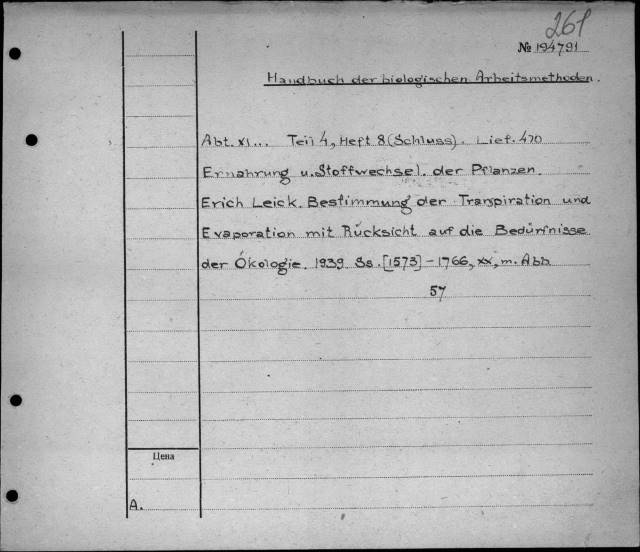 261
№ 194791
Handbuch der biologischen Arbeitsmethoden.
Abt. XI... Teil 4, Heft 8 (Schluss). Lief. 470
Ernahrung u. Stoffwechsel der Pflanzen.
Erich Leick. Bestimmung der Transpiration und
Evaporation mit Rücksicht auf die Bedürfnisse
der Ökologie. 1939. Ss. [1573] - 1766, XX, m. Abb.
57
Цена
A.